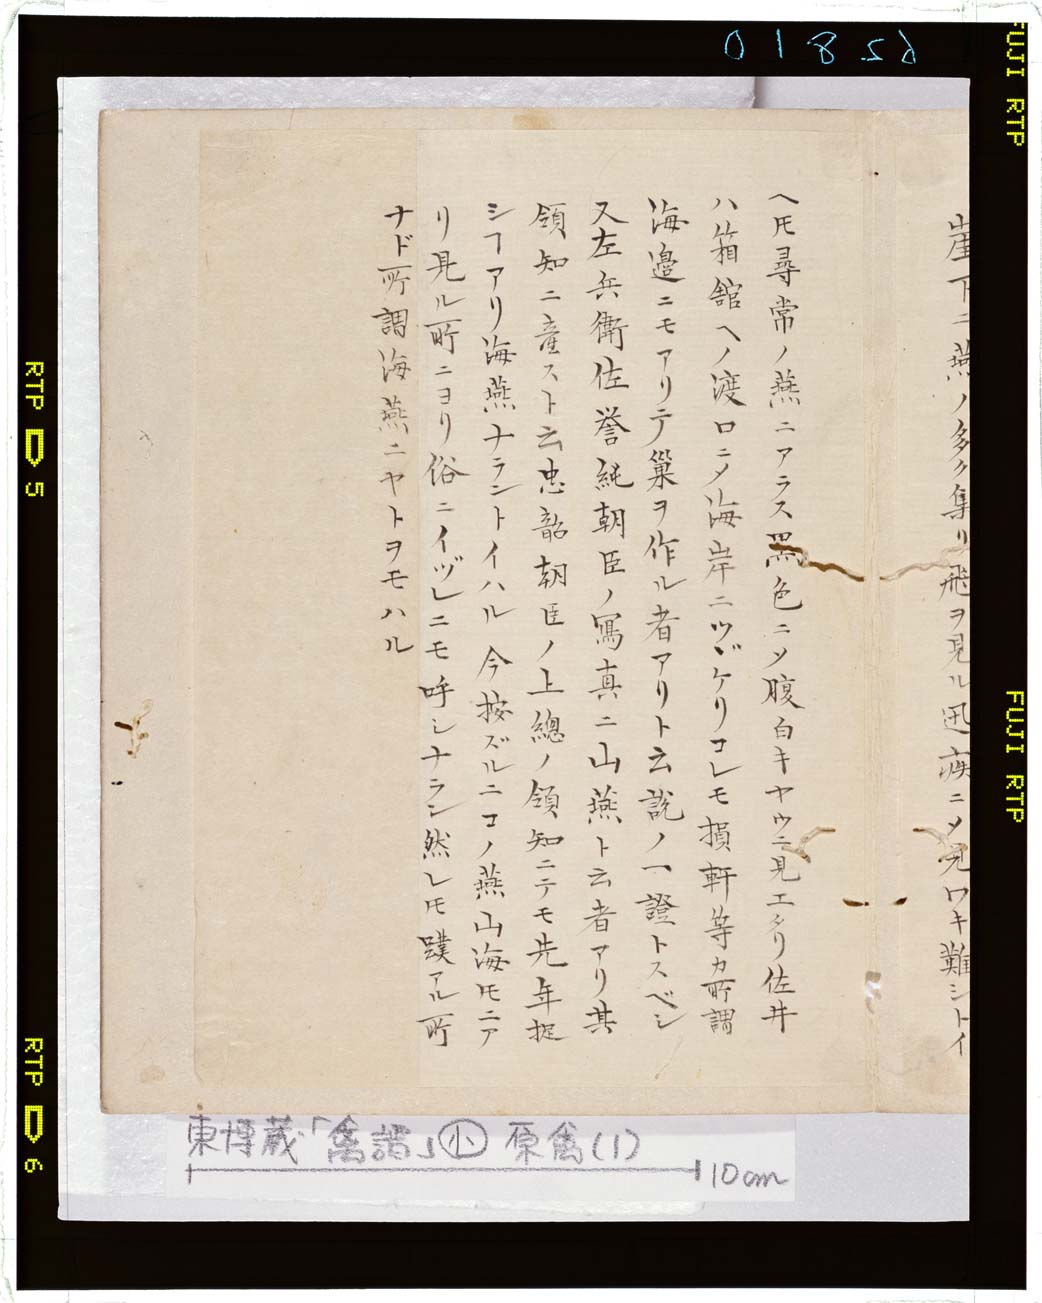 崖下ニ燕ノ多ク集リ飛ヲ見ル迅疾ニメ見ワキ難シトイ
ヘ𪜈尋常ノ燕ニアラス黒色ニメ腹白キヤウニ見エタリ佐井
ハ箱舘ヘノ渡口ニメ海岸ニツヾケリコレモ損軒等カ所謂
海邉ニモアリテ巢ヲ作ル者アリト云説ノ一證トスベシ
又左兵衛佐誉純朝臣ノ寫真ニ山燕ト云者アリ其
領知ニ産スト云忠韶朝臣ノ上總ノ領知ニテモ先年捉
シヿアリ海燕ナラントイハル 今按ズルニコノ燕山海𪜈ニア
リ見ル所ニヨリ俗ニイヅレニモ呼シナラン然レ𪜈蹼アル所
ナド所謂海燕ニヤトヲモハル
東博蔵「禽譜」小 原禽(1)
10cm
FUJI RTP
FUJI RTP
RTP 5
RTP 6